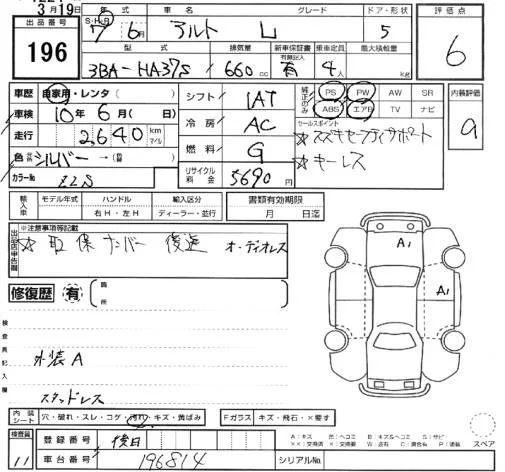 3月19日
出品番号 196
年式 車名 グレード ドア・形状 評価点
S・H・R 7 6月 アルト L 5 6
型式 排気量 新車保証書 乗車定員 最大積載量
3BA-HA37S 660cc 有 4人 kg
車歴 自家用・レンタ( )
車検 10年6月( 日)
走行 2,640 km マイル
色 シルバー→( )
カラーNo ZZS
シフト IAT
冷房 AC
燃料 G
リサイクル料金 5690
純正のみ PS PW AW SR
ABS エアB TV ナビ
内装評価 a
セールスポイント
☆スズキセーフティサポート
☆キーレス
輸入車 モデル年式 ハンドル 輸入区分 書類有効期限
右H・左H ディーラー・並行 月 日迄
出品店申告欄 ※注意事項等記載
☆取 保 ナンバー 後送 オーディオレス
修復歴 有 箇所
検査員記入欄
外装A
スタッドレス
内装シート 穴・破れ・スレ・コゲ・汚れ・キズ・黄ばみ
Fガラス キズ・飛石・×要す
検査員 11
登録番号 後日
車台番号 196814
シリアルNo.
A1
A1
スペア